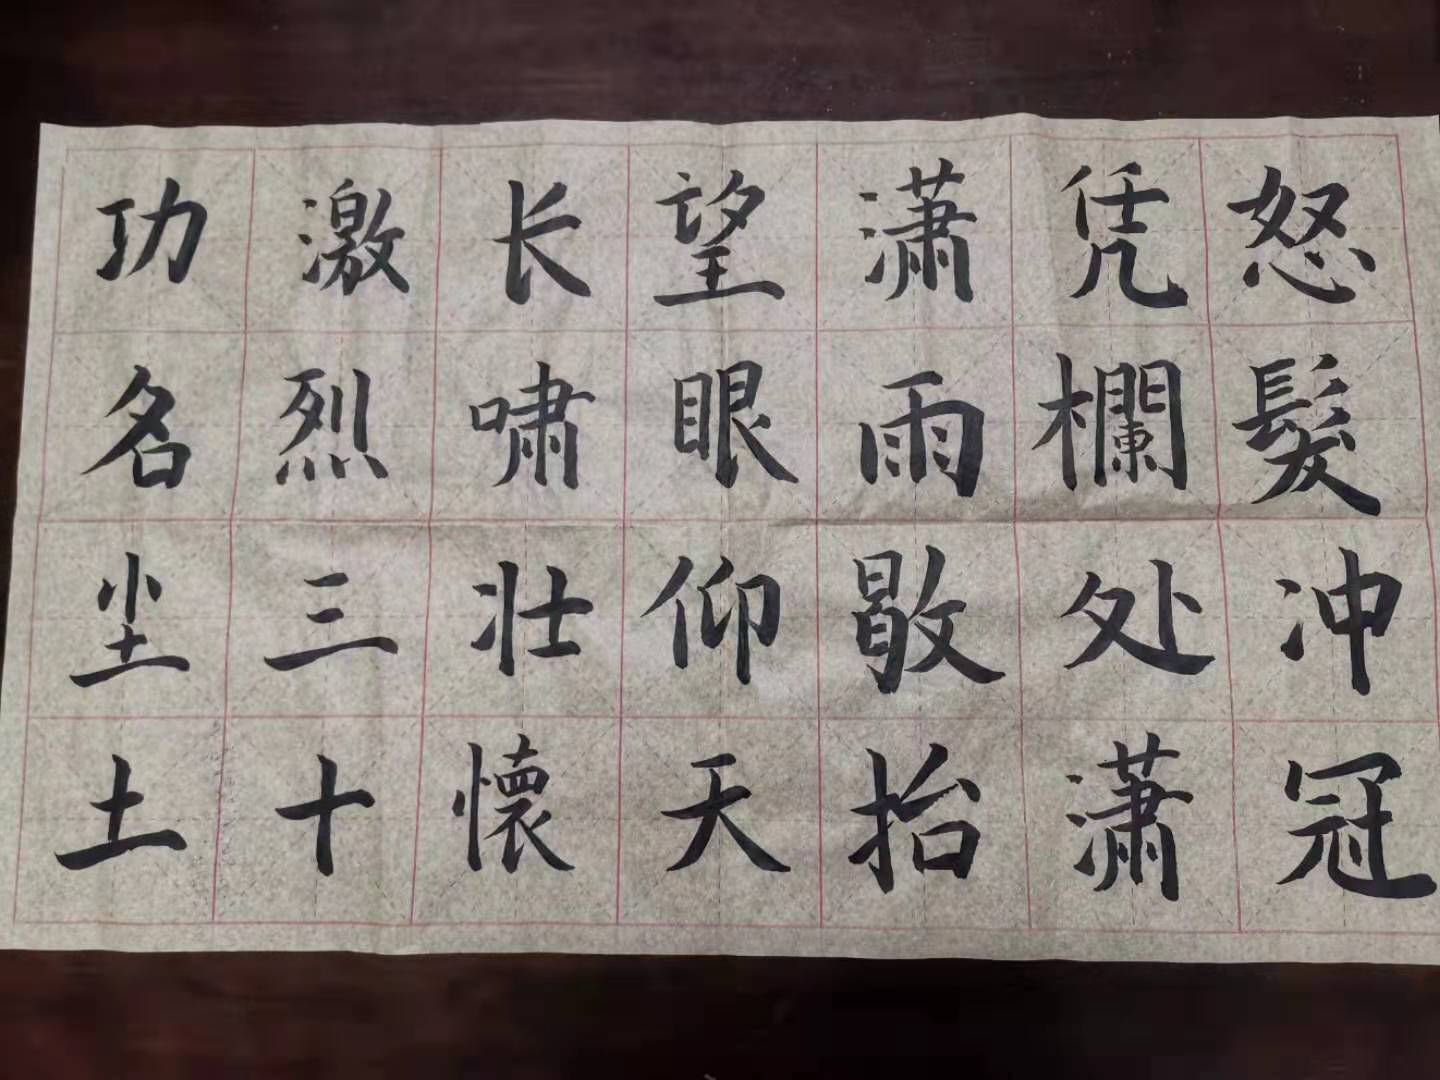 怒髮冲冠
凭欄处潇
潇雨歇抬
望眼仰天
长啸壮懷
激烈三十
功名尘土